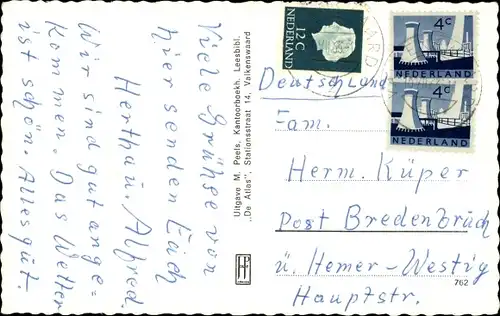 Viele Grüße von
hier senden Euch
Hertha u. Alfred.
Wir sind gut ange-
kommen. Das Wetter
ist schön. Alles gut.
Uitgave M. Peels, Kantoorboekh. Leesbibl.
„De Atlas”, Stationsstraat 14, Valkenswaard
12 C
NEDERLAND
4 C
NEDERLAND
4 C
NEDERLAND
Deutschland
Fam.
Herm. Küper
Post Bredenbruch
ü. Hemer-Westig
Hauptstr.
762